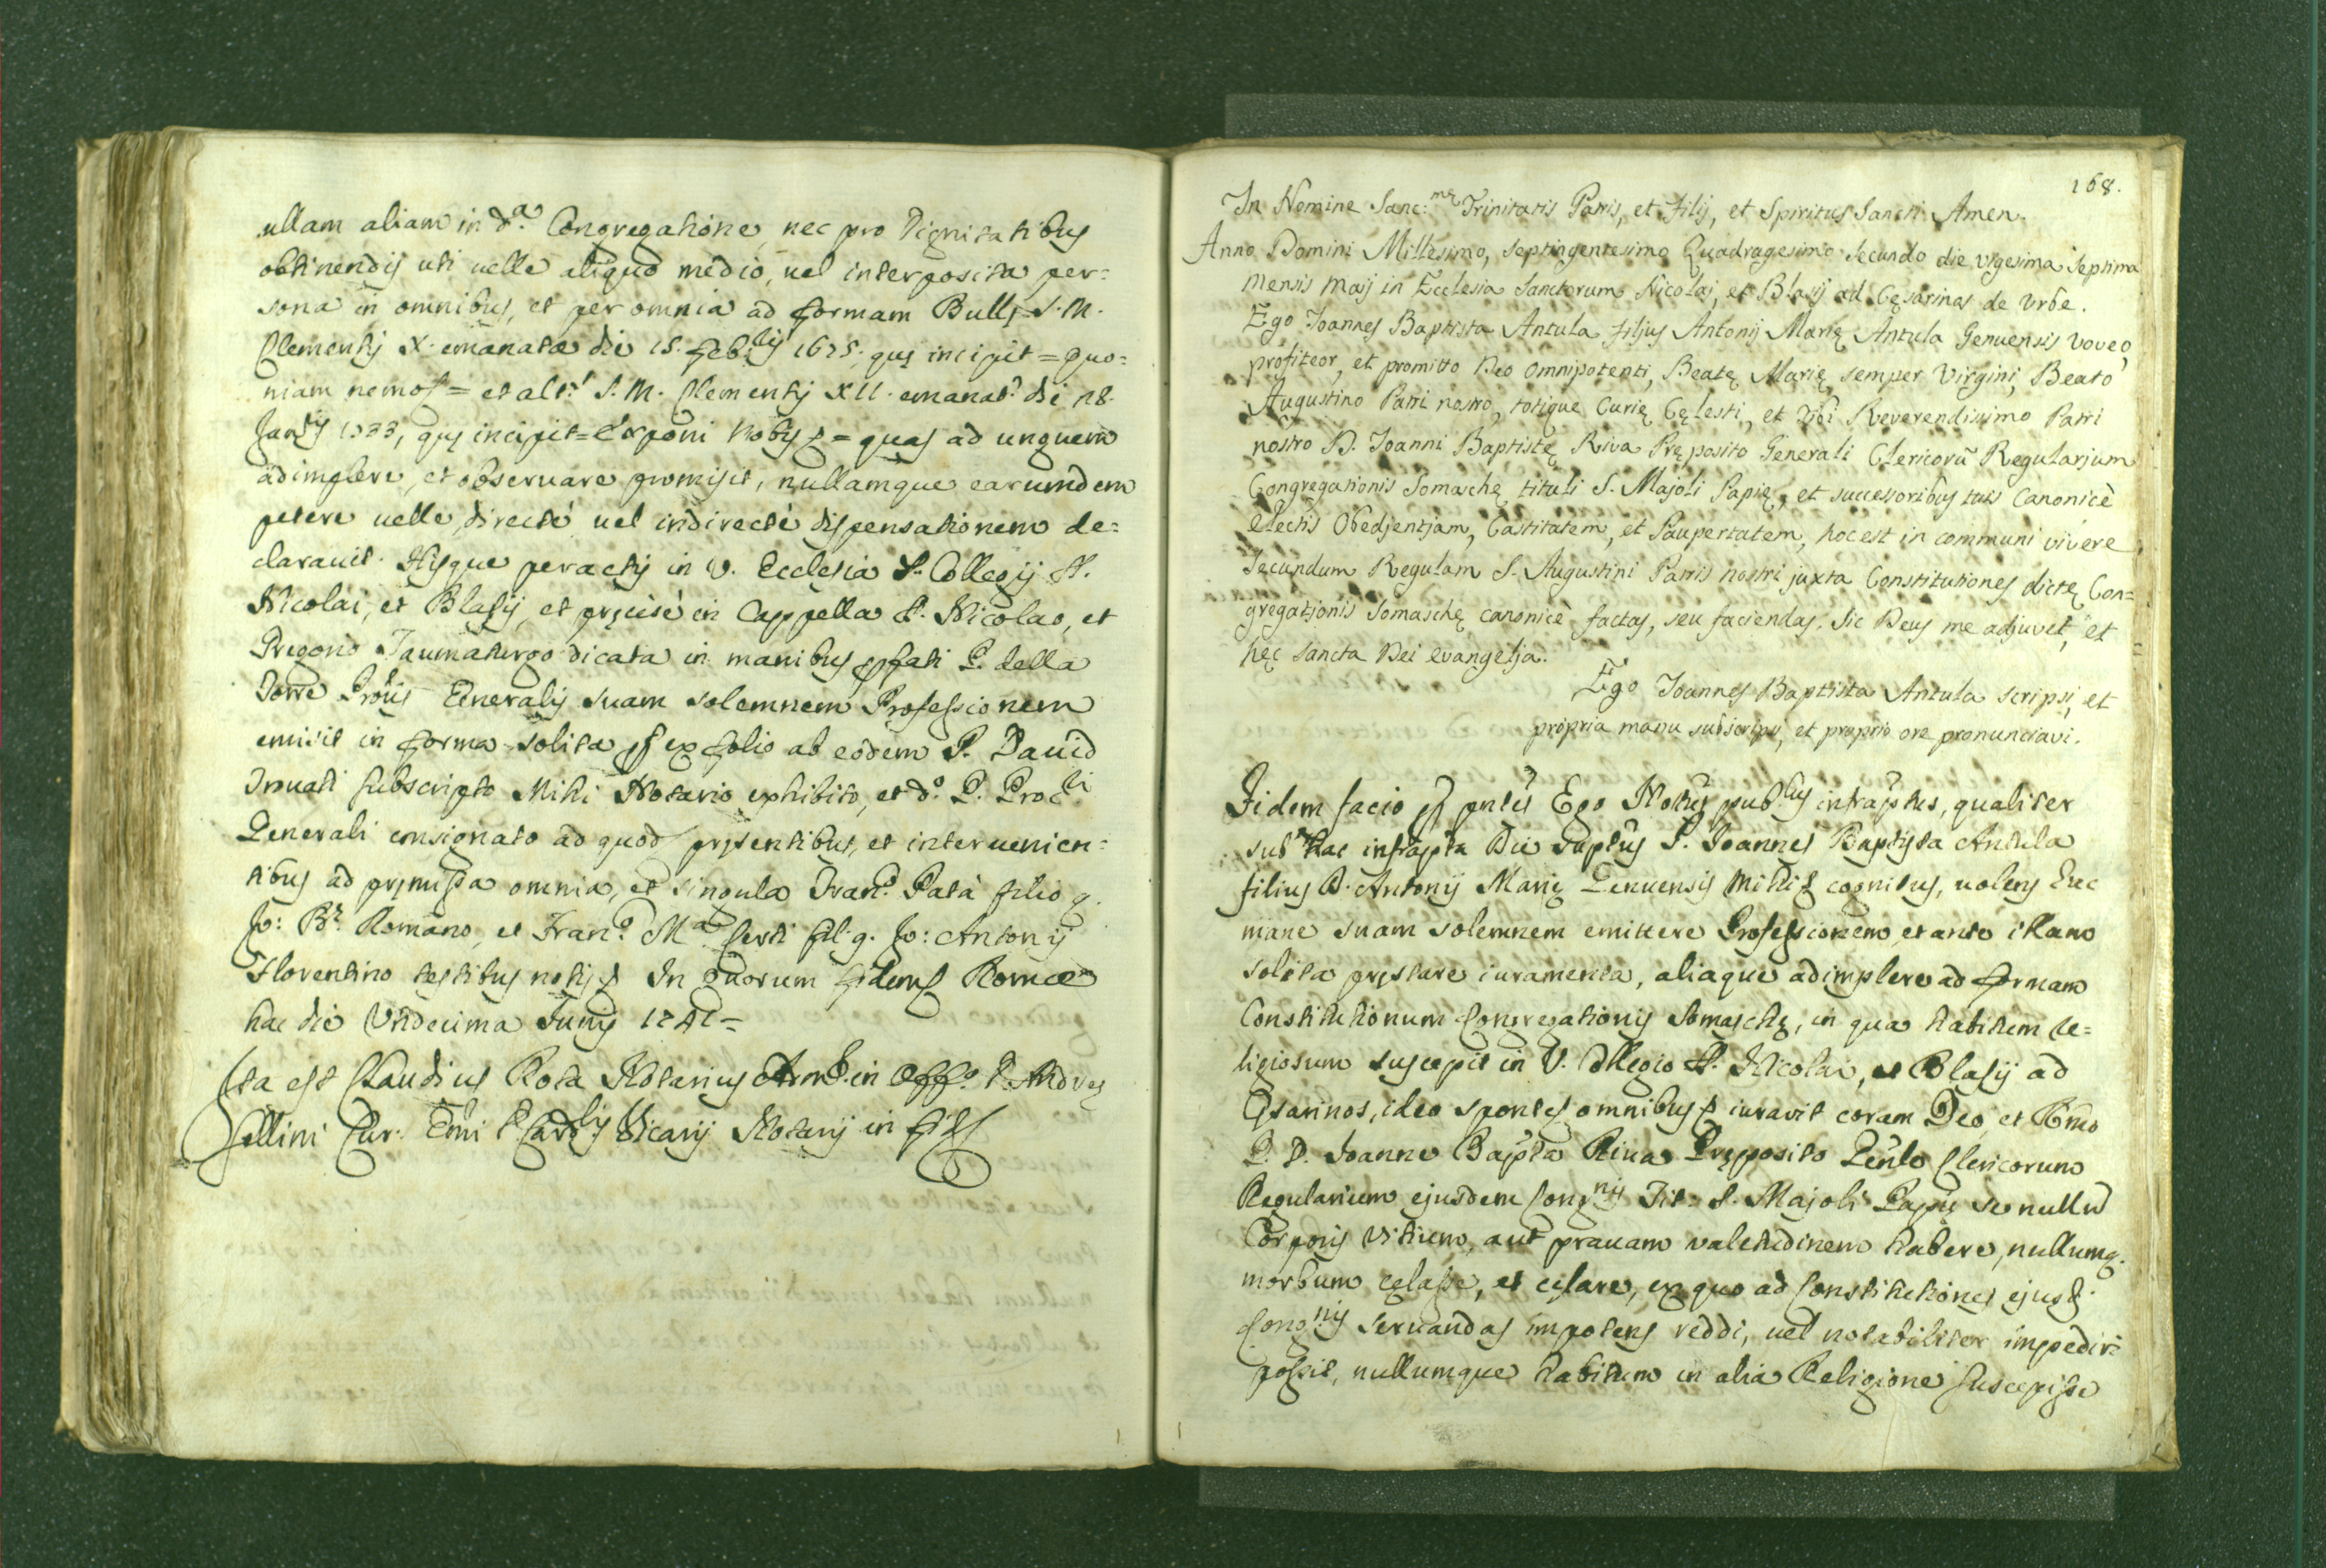 ullam aliam in d.ᵃ Congregatione, nec pro Dignitatibus
obtinendis uti uelle aliquo medio, uel interposita per=
sona in omnibus, et per omnia ad formam Bullę S. M.
Clementis X. emanatæ die 15. feb.ʳⁱʲ 1675. quę incipit = Quo=
niam nemo = et alt.ʳ S. M. Clementis XII. emanat. die 28.
Jan.ʳⁱʲ 1733, quę incipit = Exponi Nobis = quas ad unguem
adimplere, et obseruare promisit, nullamque earumdem
petere uelle directè uel indirectè dispensationem de=
clarauit. Hisque peractis in V. Ecclesia S. Collegij SS.
Nicolai, et Blasij, et pręcisè in Cappella S. Nicolao, et
Gregorio Taumaturgo dicata in manibus pfati P. della
Torre Prõris Gñeralis suam solemnem Professionem
emisit in forma solita ex folio ab eodem P. Dauid
Subscripto Mihi Notario exhibito, et d.º P. Proc.ʳⁱ
Generali consignato ad quod pręsentibus, et interuenien=
tibus ad pręmissa omnia, et singula Fran.º Patà filio q.
Jo: Bꝰ. Romano, et Fran.º M.ᵃ Certi fil. q. Jo: Antonij
Florentino testibus notis In quorum fidem Romæ
hac die Vndecima Junij 1741 =
Ita est Claudius Rota Notarius in Off.º D. Andreę
Cur. Emi D. Card.ˡⁱˢ Vicarij Notarij in fid
168.
In Nomine Sanc:ᵐᵉ Trinitatis Patris, et Filij, et Spiritus Sancti Amen.
Anno Domini Millesimo, septingentesimo Quadragesimo secundo die vigesima septima
Mensis Maij in Ecclesia Sanctorum Nicolai, et Blasij ad Cęsarinas de Vrbe.
Ego Joannes Baptista Antula filjus Antonij Marię Antula Genuensis voveo,
profiteor, et promitto Deo omnipotenti, Beatę Marię semper Virgini, Beato
Augustino Patri nostro, totique Curię Cęlesti, et Tibi Reverendissimo Patri
nostro D. Joanni Baptistę Riva Pręposito Generali Clericorũ Regularjum
Congregationis Somaschę tituli S. Majoli Papię, et successoribus tuis Canonicè
electis Obedjentjam, Castitatem, et Paupertatem, hoc est in communi vivere
Secundum Regulam S. Augustini Patris nostri juxta Constitutiones dictę Con=
gregatjonis Somaschę canonicè factas, seu faciendas. Sic Deus me adjuvet, et
hęc Sancta Dei evangelja.
Ego Joannes Baptista Antula scripsi, et
propria manu subscripsi, et proprio ore pronunciavi.
Fidem facio p pntes Ego Notũs pub.ᶜᵘˢ infraptus, qualiter
sub hac infrapta Die suptus P. Joannes Baptista Antula
filius D. Antonij Marię Genuensis Mihi cognitus, uolens hac
mane suam solemnem emittere Professionem, et ante illam
solita pręstare iuramenta, aliaque adimplere ad formam
Constitutionum Congregationis Somaschę, in qua habitum Re=
ligiosum suscepit in V. Collegio SS. Nicolai, et Blasij ad
Cęsarinos, ideo sponte omnibus iuravit coram Deo, et Rm̃o
P. D. Joanne Bapta Riua Pręposito Genle Clericorum
Regularium ejusdem Cong.ⁿⁱˢ Tit. S. Majoli Papię se nullũ
Corporis Vitium, aut prauam valetudinem habere, nullumq.
morbum cęlasse, et cęlare, ex quo ad Constitutiones ejusd.
Cong.ⁿⁱˢ seruandas impotens reddi, uel notabiliter impediri
possit, nullumque habitum in alia Religione suscepisse